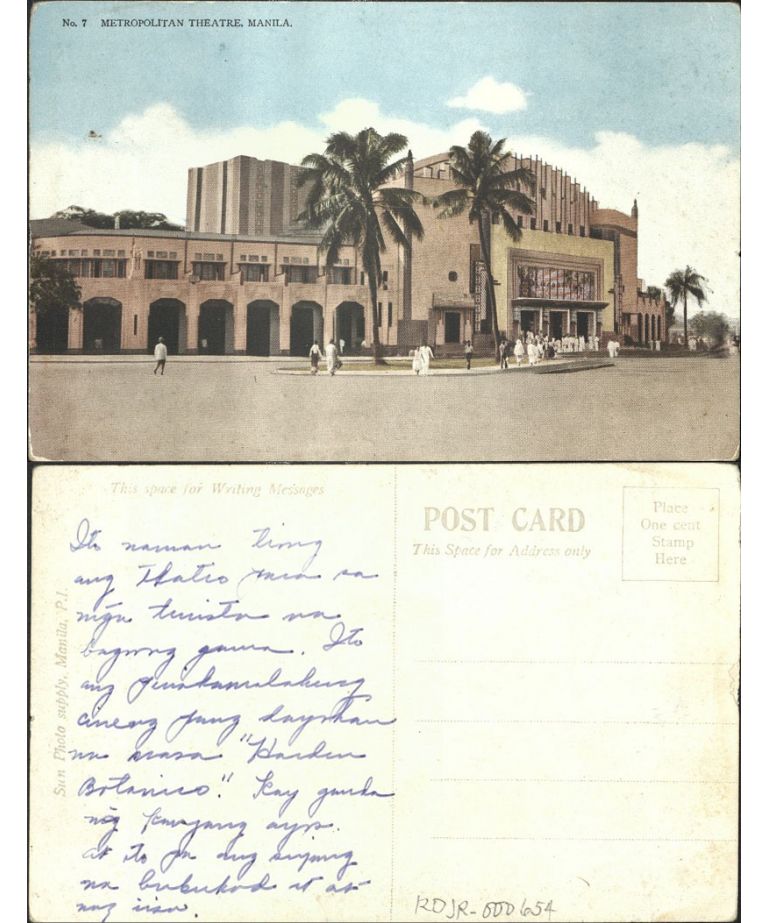 No. 7 METROPOLITAN THEATRE, MANILA.
This space for Writing Messages
Ito naman
ang para sa
mga turista na
bagong gawa. Ito
ang pinakamalaking
cineng pang dayuhan
na nasa "Harden
Botanico." Kay ganda
ng kanyang ayos.
at ito pa ang
na bubukod at
nag iisa.
Sun Photo supply, Manila, P.I.
POST CARD
This Space for Address only
Place
One cent
Stamp
Here
RDJR-000654